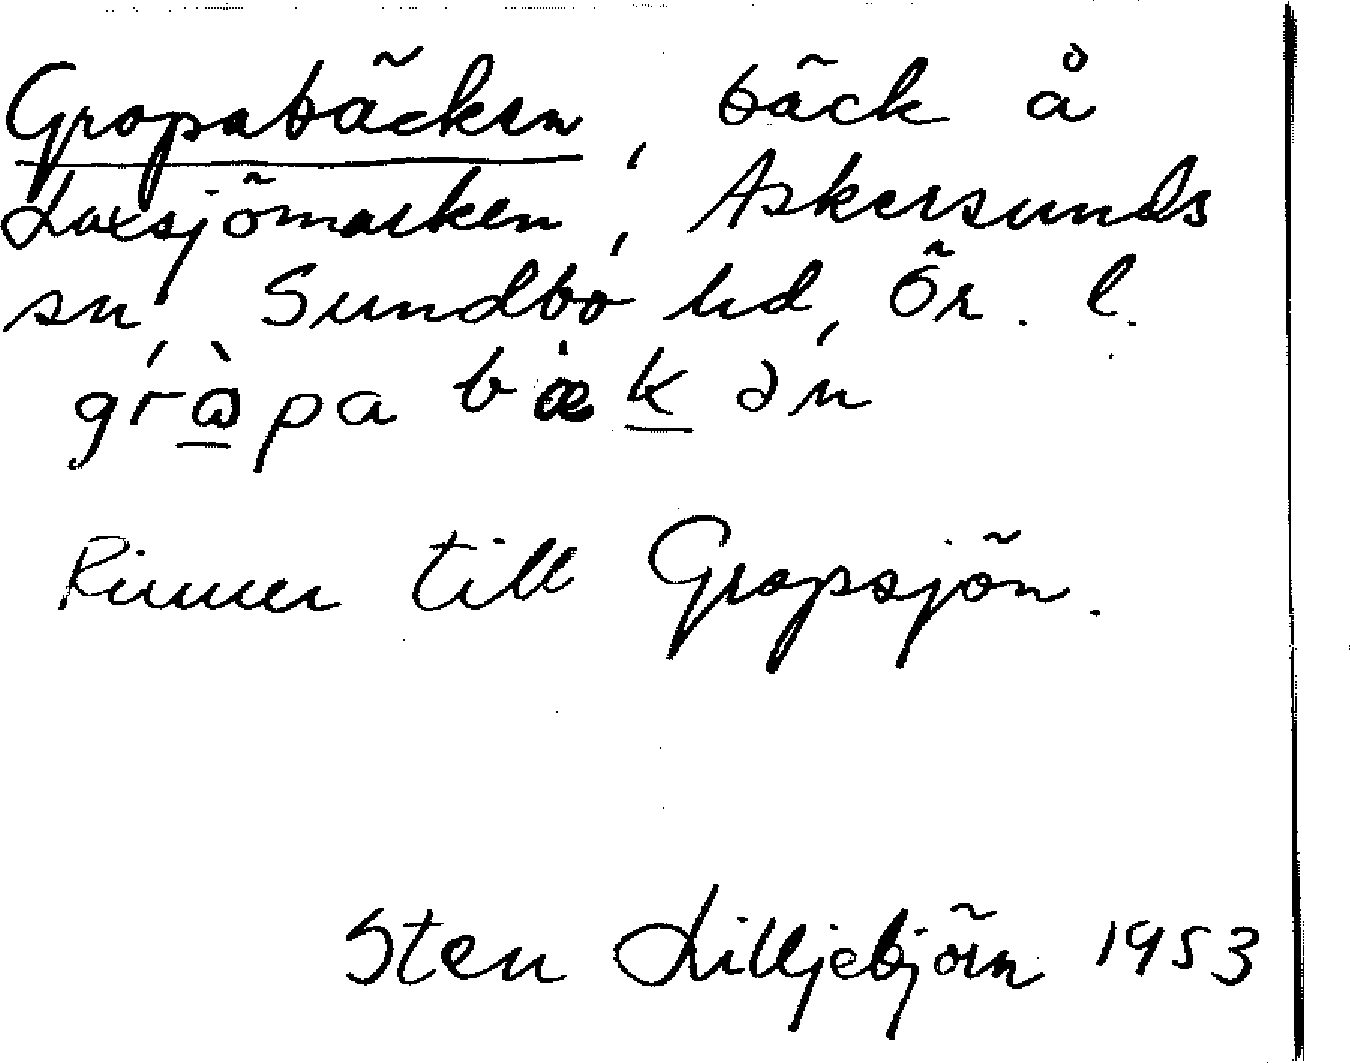 Gropabäcken, bäck å
Laxsjömarken, Askersunds
sn, Sundbo hd, Ör. l.
gràpa bækən
Rinner till Gropsjön.
Sten Lilljebjörn 1953